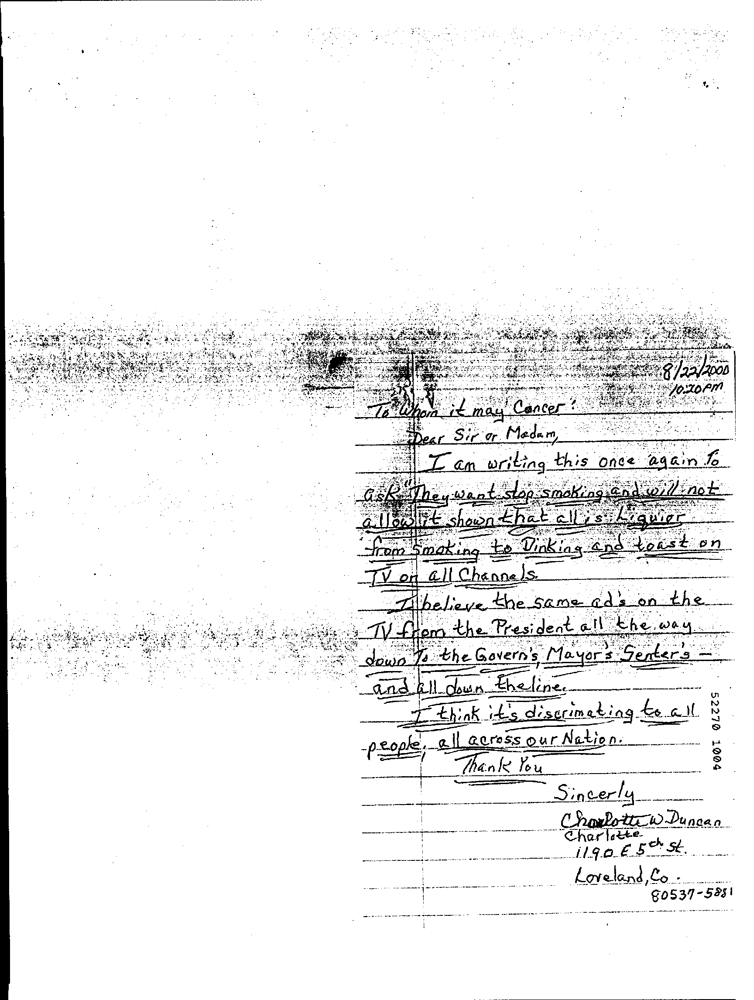 8/22/2000
10:20 PM
To Whom it may Cancer:
Dear Sir or Madam,
I am writing this once again To
ask "They want stop smoking and will not
allow it shown that all is Liquier
from smoking to Dinking and toast on
TV on all Channels.
I believe the same ad's on the
TV from the President all the way
down To the Govern's, Mayor's Senter's -
and all down the line.
I think it's discrimating to all
people, all across our Nation.
Thank You
Sincerly
Charlotte W. Duncan
Charlotte
1190 E 5th St.
Loveland, Co.
80537-5881
52270 1004